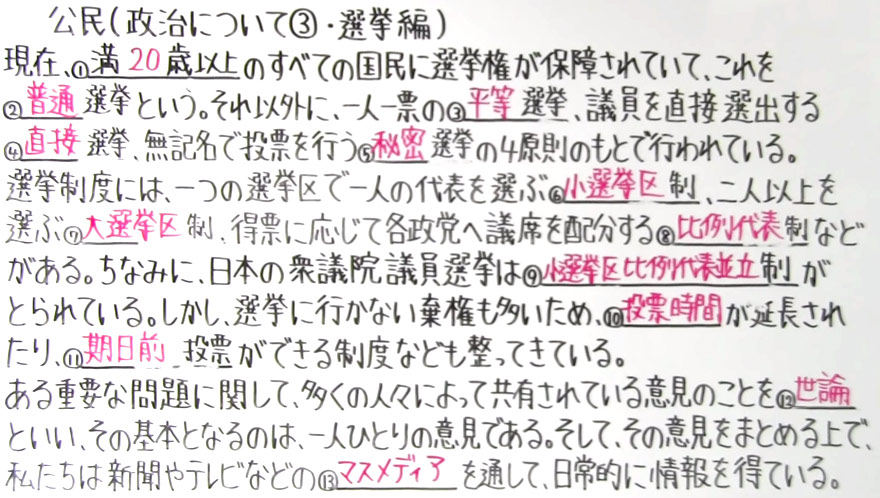 公民(政治について③・選挙編)
現在、①満20歳以上のすべての国民に選挙権が保障されていて、これを
②普通選挙という。それ以外に、一人一票の③平等選挙、議員を直接選出する
④直接選挙、無記名で投票を行う⑤秘密選挙の4原則のもとで行われている。
選挙制度には、一つの選挙区で一人の代表を選ぶ⑥小選挙区制、二人以上を
選ぶ⑦大選挙区制、得票に応じて各政党へ議席を配分する⑧比例代表制など
がある。ちなみに、日本の衆議院議員選挙は⑨小選挙区比例代表並立制が
とられている。しかし、選挙に行かない棄権も多いため、⑩投票時間が延長され
たり、⑪期日前投票ができる制度なども整ってきている。
ある重要な問題に関して、多くの人々によって共有されている意見のことを⑫世論
といい、その基本となるのは、一人ひとりの意見である。そして、その意見をまとめる上で、
私たちは新聞やテレビなどの⑬マスメディアを通して、日常的に情報を得ている。